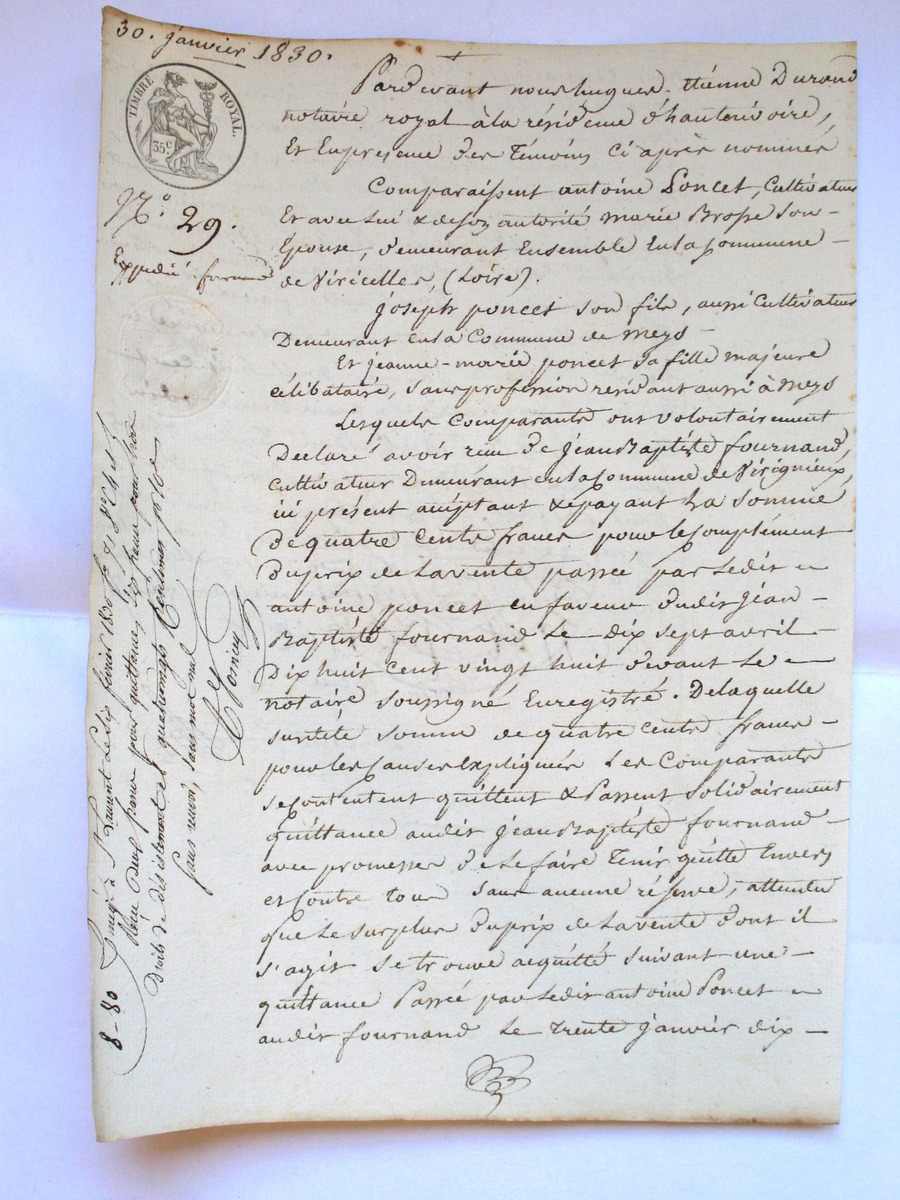 30. janvier 1830.
TIMBRE ROYAL.
35 c
N.o 29.
Expédié fournand
Pardevant nous hugues-étienne Durand
notaire royal à la résidence d'hauterivoire,
Et En présence des Témoins Ci après nommés
Comparaissent antoine Poncet, Cultivateur
Et avec lui & de son autorité marie Brosse son
Epouse, demeurant Ensemble En la Commune
de Viricelles, (Loire).
joseph poncet son fils, aussi Cultivateur
Demeurant en la Commune de meys
Et jeanne-marie poncet sa fille majeure
célibataire, sans profession residant aussi à meys
Lesquels Comparants ont volontairement
Déclaré avoir reçu de jean Baptiste fournand,
cultivateur Demeurant en la Commune de Virignieux,
ici présent acceptant & payant La Somme
De quatre Cents francs pour le Complément
Du prix de la vente passée par Ledit
antoine poncet en faveur dudit jean
Baptiste fournand Le dix sept avril
Dix huit Cent vingt huit devant Le
notaire soussigné Enregistré. De laquelle
susdite somme de quatre Cents francs
pour les Causes Expliquées Les Comparants
se contentent quittent & Passent solidairement
quittance audit jean Baptiste fournand
avec promesse de Le faire Tenir quitte Envers
et Contre tous sans aucune réserve, attendu
que Le surplus du prix de La vente dont il
s'agit se trouve acquitté suivant une
quittance Passée par Ledit antoine Poncet
audit fournand Le Trente janvier dix
St Laurent Le dix février 1830
Reçu Deux francs pour quittance, six francs pour trois
Droits de désistement et quatre vingts Centimes pour le
sans renvoi, sans mot nul
8-80